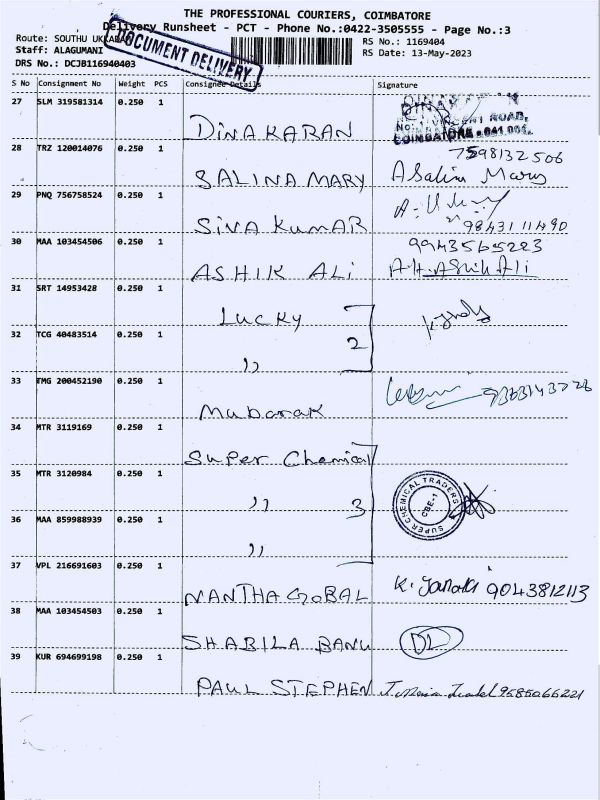 THE PROFESSIONAL COURIERS, COIMBATORE
Delivery Runsheet - PCT - Phone No.:0422-3505555 - Page No.:3
Route: SOUTHU UKKADAM
RS No.: 1169404
Staff: ALAGUMANI
RS Date: 13-May-2023
DOCUMENT DELIVERY
DRS No.: DCJB116940403
S No Consignment No Weight PCS Consignee Details Signature
27 SLM 319581314 0.250 1
DINAKARAN
COIMBATORE - 641 001.
28 TRZ 120014076 0.250 1
7598132506
SALINA MARY A Salina Mary
29 PNQ 756758524 0.250 1
SIVA KUMAR
98431 11490
30 MAA 103454506 0.250 1
9943565223
ASHIK ALI A.H. Ashik Ali
31 SRT 14953428 0.250 1
Lucky
32 TCG 40483514 0.250 1
2
,,
33 TMG 200452190 0.250 1
Mubarak
34 MTR 3119169 0.250 1
Super Chemical
35 MTR 3120984 0.250 1
,, 3
SUPER CHEMICAL TRADERS
CBE-1
36 MAA 859988939 0.250 1
,,
37 VPL 216691603 0.250 1
NANTHA GOBAL K. Janaki 9043812113
38 MAA 103454503 0.250 1
SHABILA BANU DL
39 KUR 694699198 0.250 1
PAUL STEPHEN 9585066221